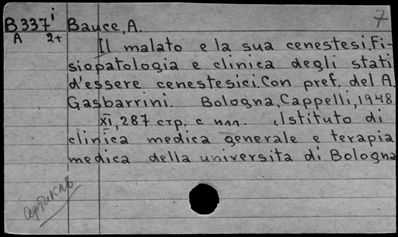 7
B337i Bauce, A.
A 2+
Il malato e la sua cenestesi. Fi-
siopatologia e clinica degli stati
d'essere cenestesici. Con pref. del A.
Gasbarrini. Bologna, Cappelli, 1948
XI, 287 стр. с илл. "Istituto di
clinica medica generale e terapia
medica della universita di Bologna